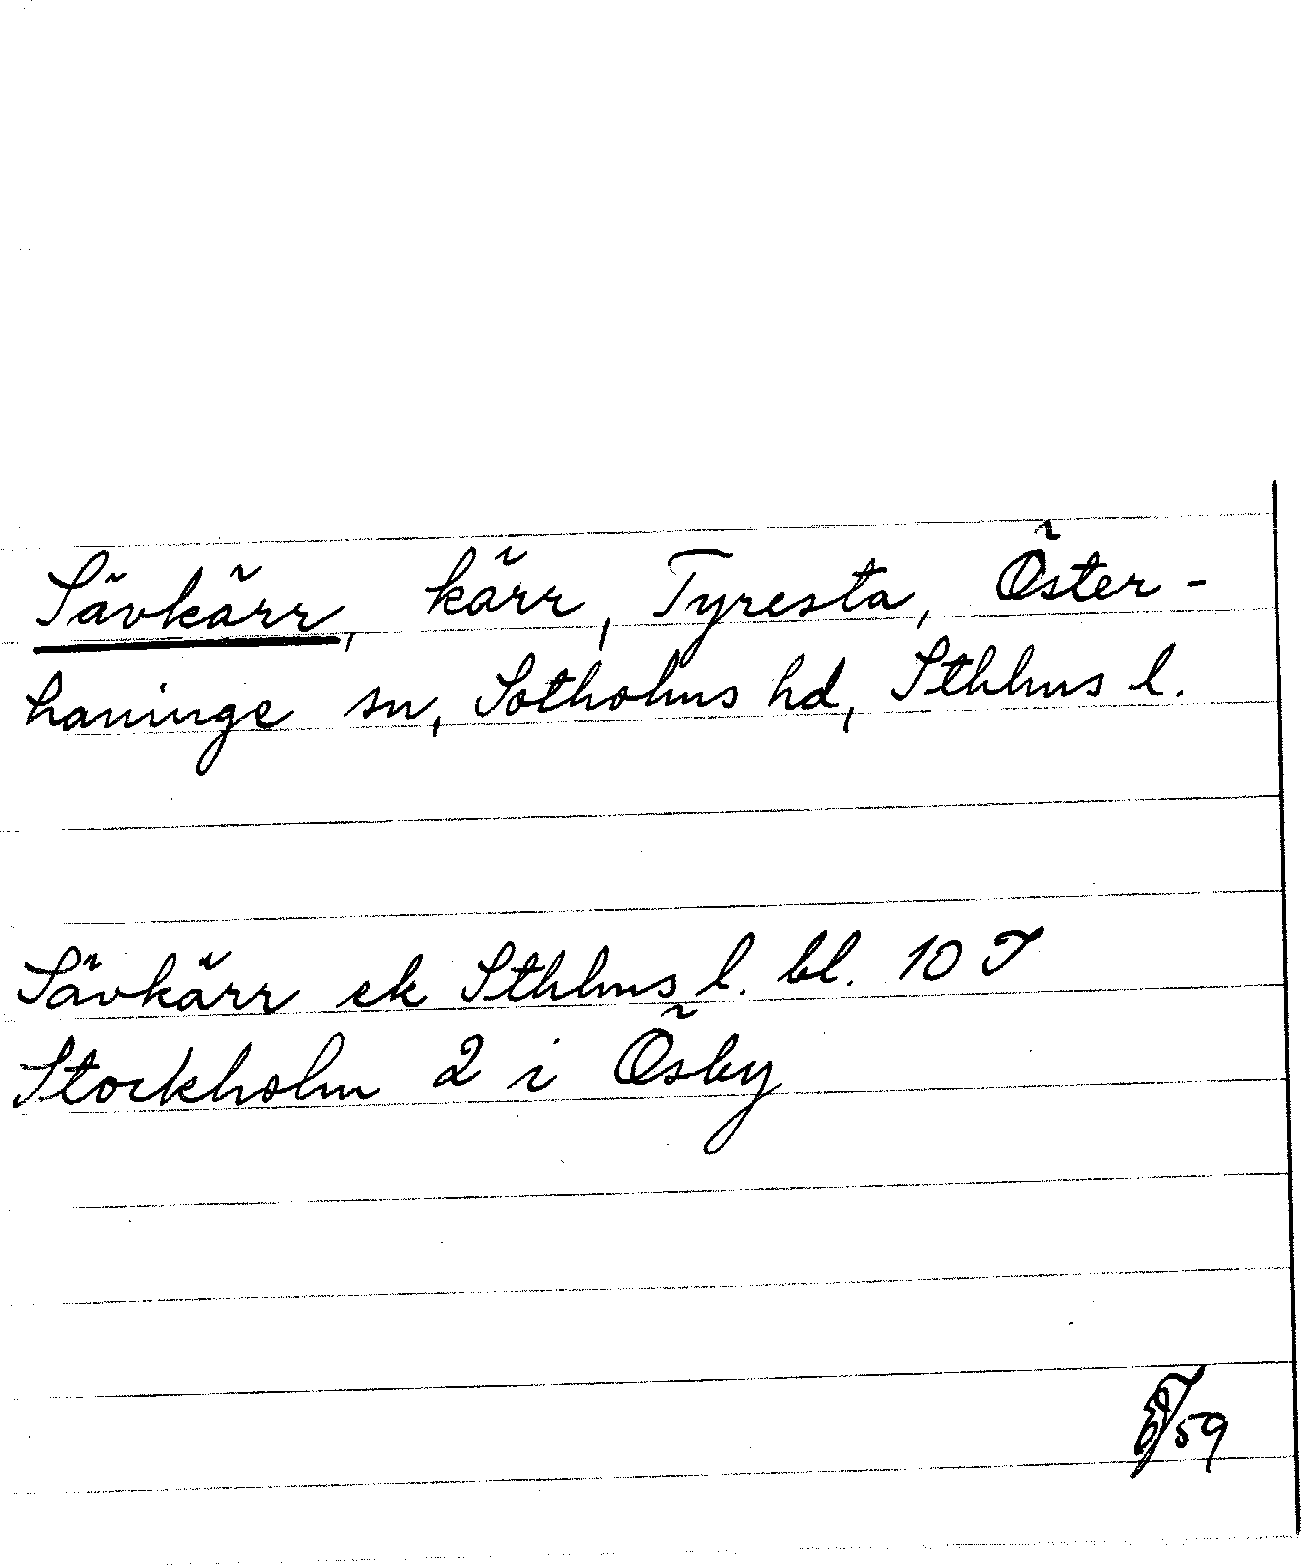 Sävkärr, kärr, Tyresta, Öster-
haninge sn, Sotholms hd, Sthlms l.
Sävkärr ek Sthlms l. bl. 10 J
Stockholm 2 i Ösby
59